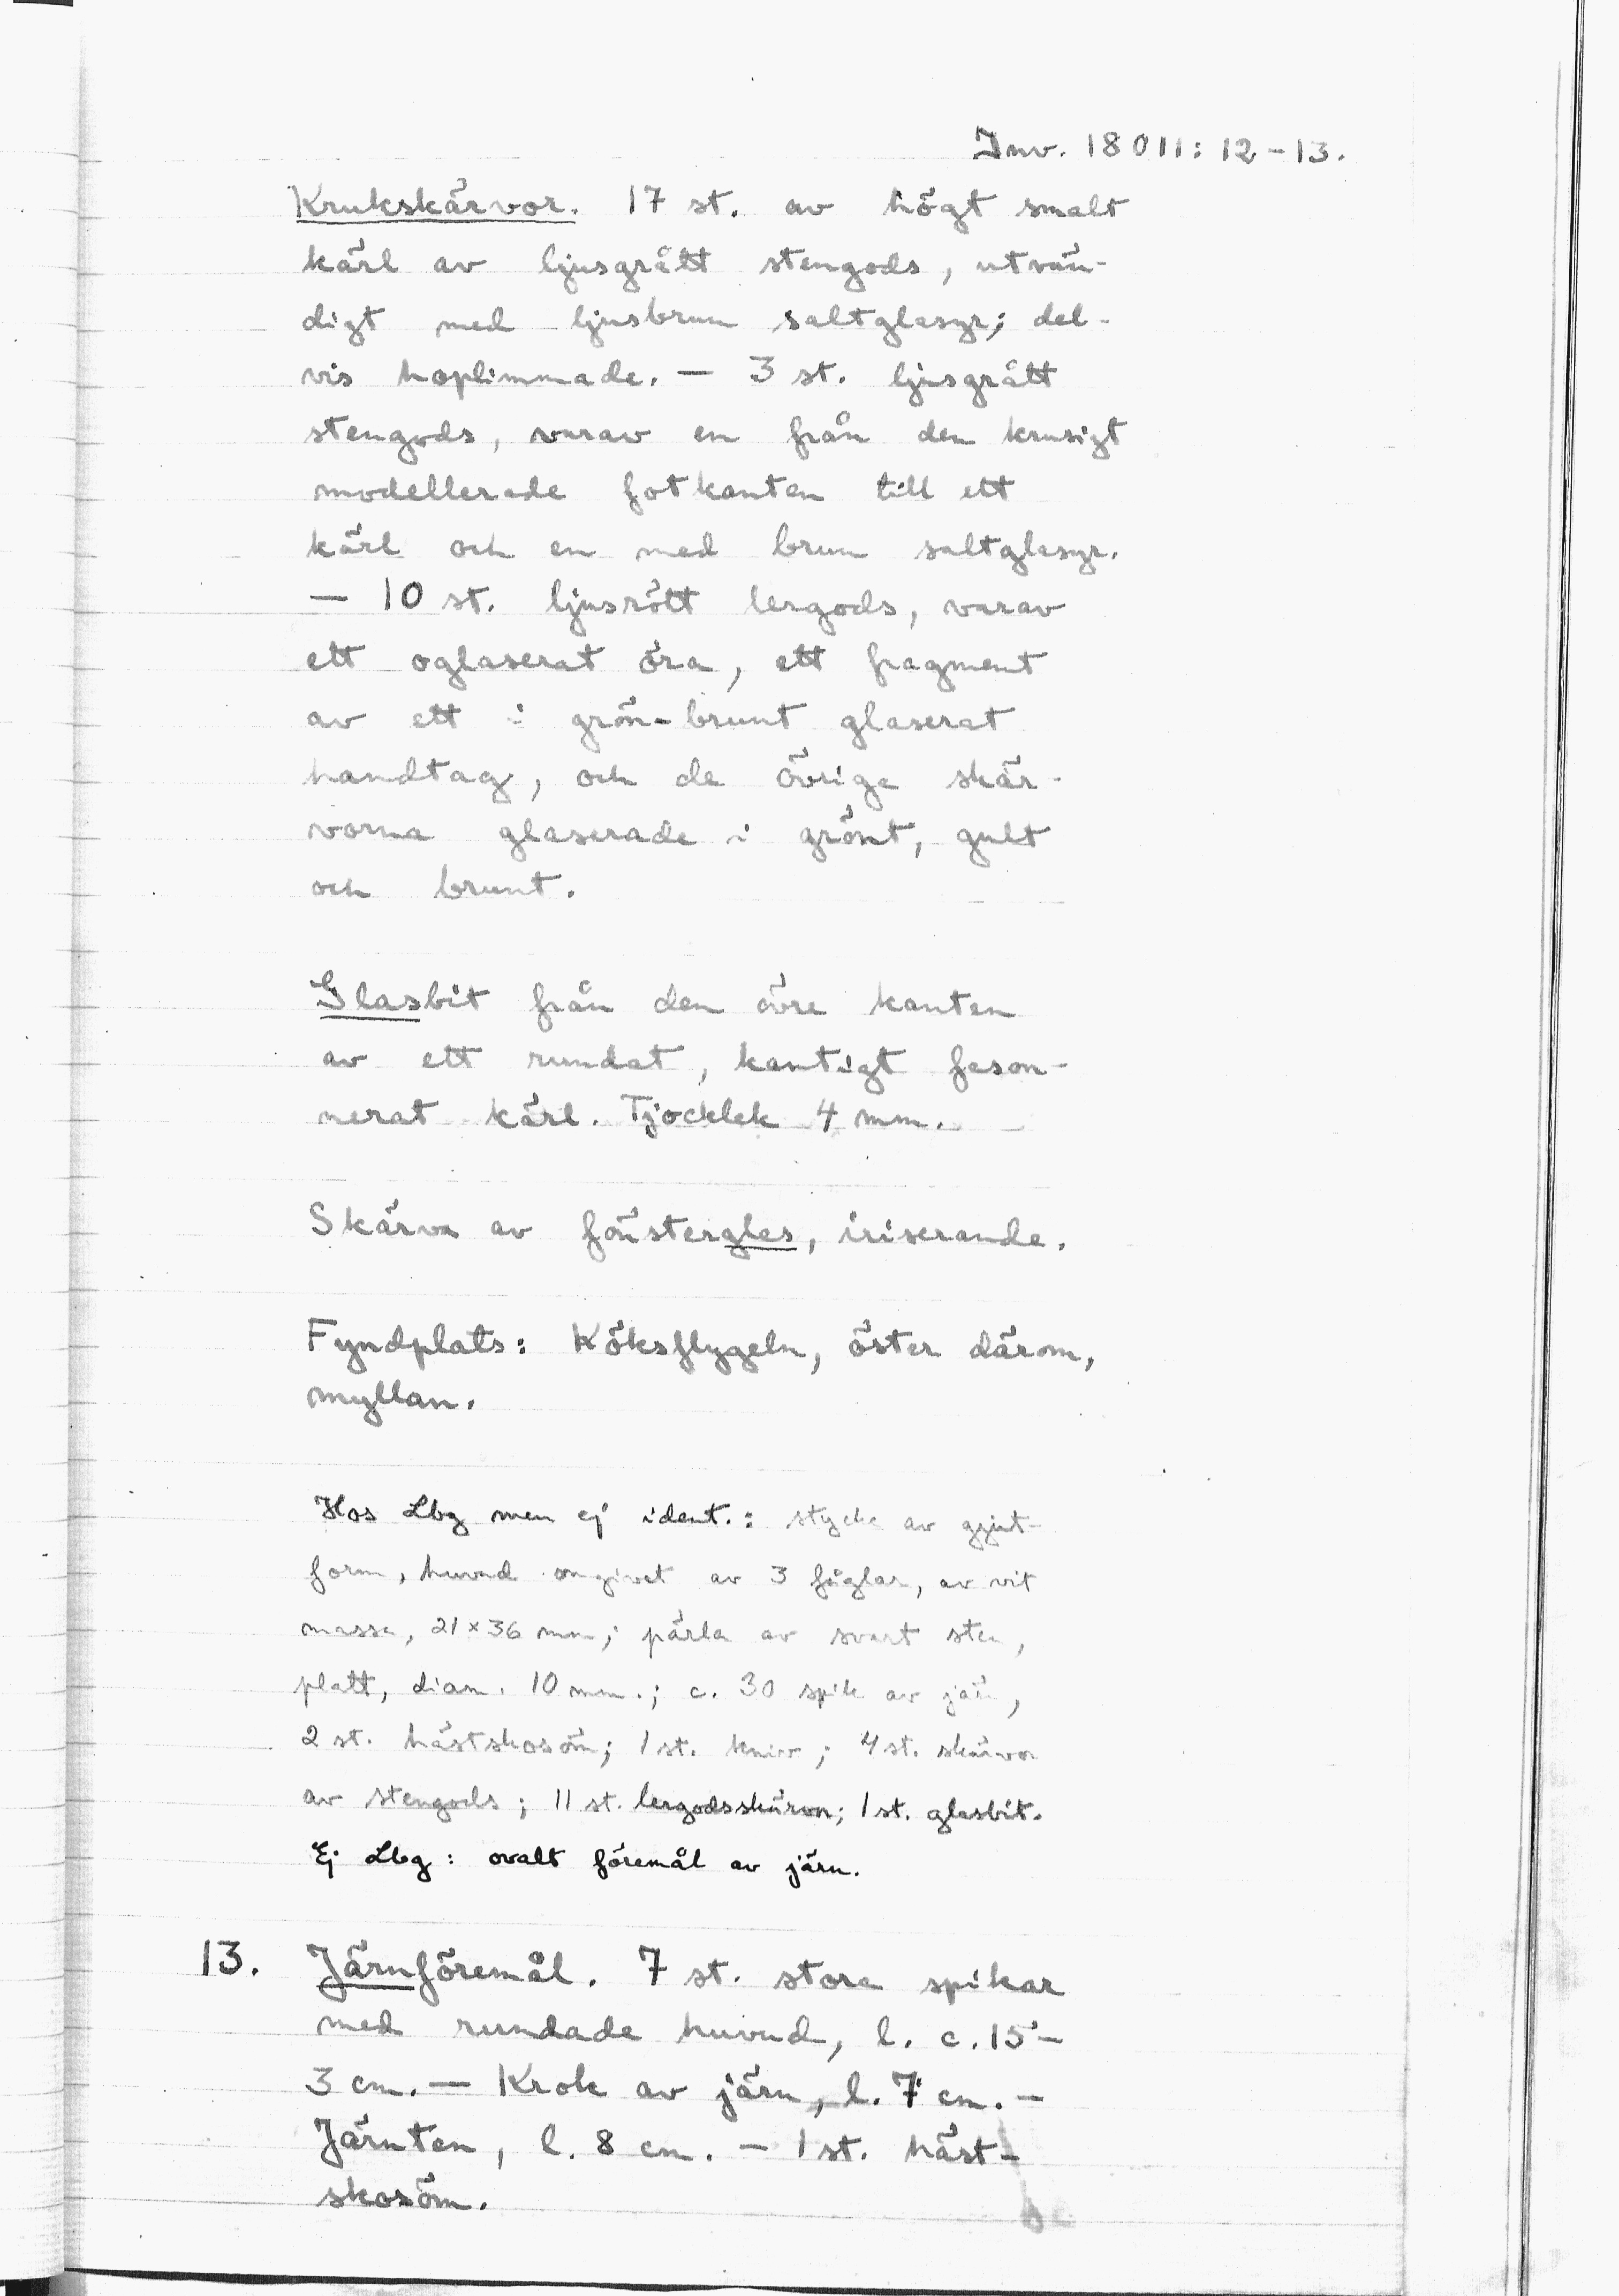 Inv. 18011: 12-13.
Krukskärvor. 17 st. av högt smalt
kärl av ljusgrått stengods, utvän-
digt med ljusbrun saltglasyr; del-
vis hoplimmade. — 3 st. ljusgrått
stengods, varav en från den krusigt
modellerade fotkanten till ett
kärl och en med brun saltglasyr.
— 10 st. ljusrött lergods, varav
ett oglaserat öra, ett fragment
av ett i grön-brunt glaserat
handtag, och de övriga skär-
vorna glaserade i grönt, gult
och brunt.
Glasbit från den övre kanten
av ett rundat, kantigt fason-
nerat kärl. Tjocklek 4 mm.
Skärva av fönsterglas, iriserande.
Fyndplats: Köksflygeln, öster därom,
myllan.
Hos Lbg men ej ident.: stycke av gjut-
form, huvud omgivet av 3 fåglar, av vit
massa, 21 x 36 mm; pärla av svart sten,
platt, diam. 10 mm.; c. 30 spik av järn,
2 st. hästskosöm; 1 st. kniv; 4 st. skärvor
av stengods; 11 st. lergodsskärvor; 1 st. glasbit.
Ej Lbg: ovalt föremål av järn.
13. Järnföremål. 7 st. stora spikar
med rundade huvud, l. c. 15-
3 cm. — Krok av järn, l. 7 cm. -
Järnten, l. 8 cm. - 1 st. häst-
skosöm.